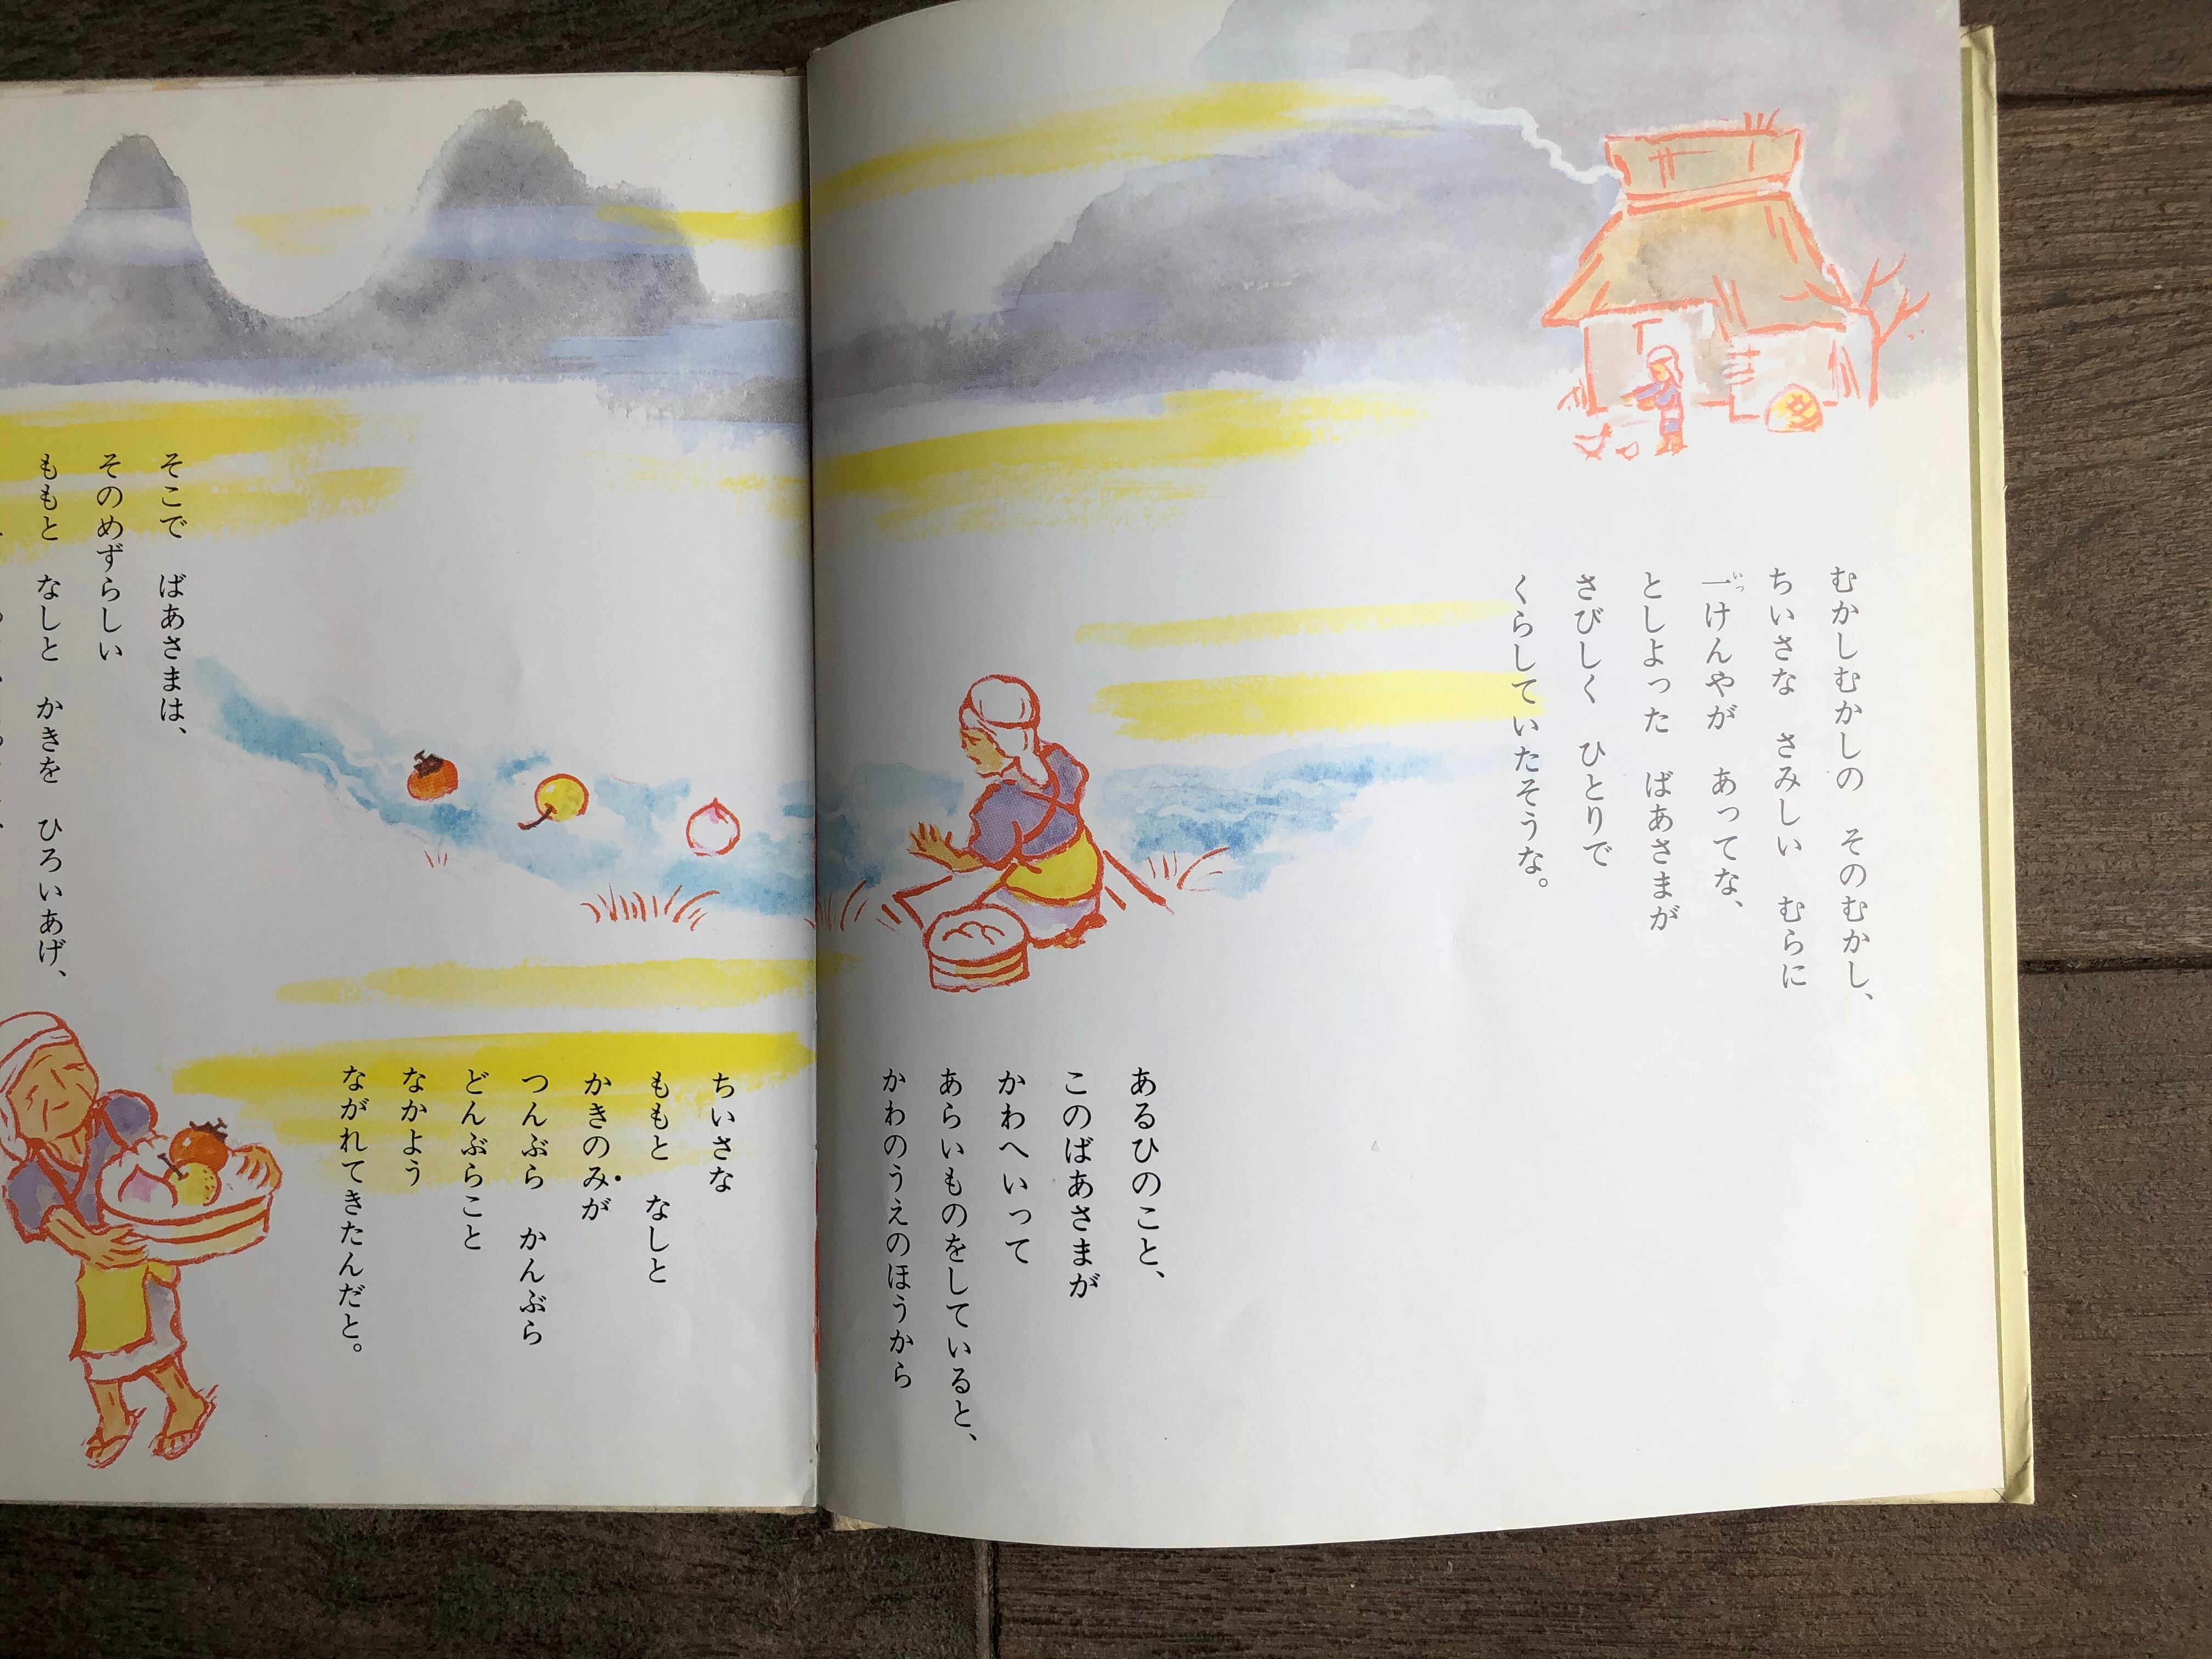 むかしむかしの　そのむかし、
ちいさな　さみしい　むらに
一けんやが　あってな、
としよった　ばあさまが
さびしく　ひとりで
くらしていたそうな。
あるひのこと、
このばあさまが
かわへいって
あらいものをしていると、
かわのうえのほうから
ちいさな
ももと　なしと
かきのみが
つんぶら　かんぶら
どんぶらこと
なかよう
ながれてきたんだと。
そこで　ばあさまは、
そのめずらしい
ももと　なしと　かきを　ひろいあげ、